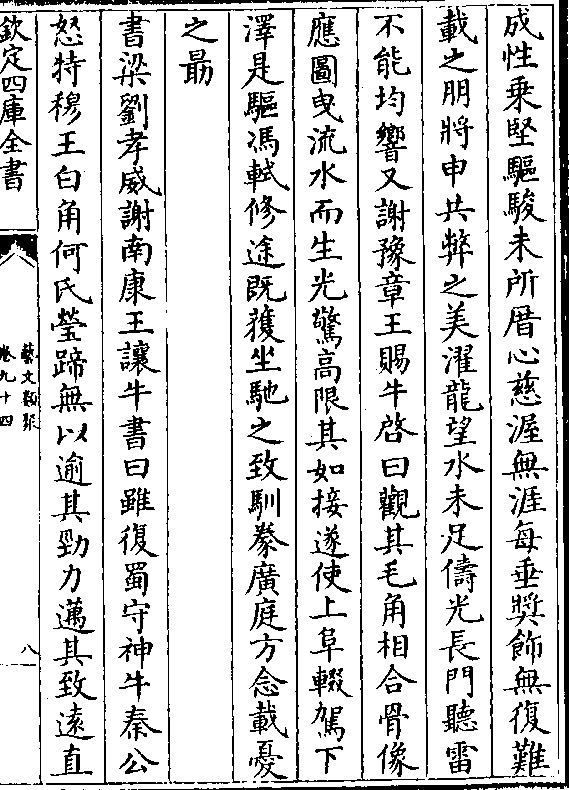 成性乗堅驅駿未所厝心慈渥無涯每垂奬飾無復難
載之朋將申共弊之美濯龍望水未足儔光長門聽雷
不能均響又謝豫章王賜牛啓曰觀其毛角相合骨像
應圖曳流水而生光驚高限其如接遂使上阜輟駕下
澤是驅馮軾修途既獲坐馳之致馴豢廣庭方念載憂
之朂
書梁劉孝威謝南康王讓牛書曰雖復蜀守神牛秦公
怒特穆王白角何氏瑩蹄無以逾其勁力邁其致逺直
欽定四庫全書
藝文類聚
卷九十四
八